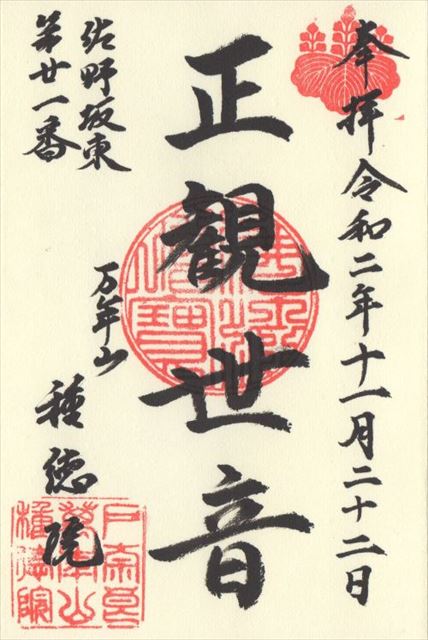 奉拝 令和二年十一月二十二日
正観世音
佐野坂東
第廿一番
万年山
種徳院